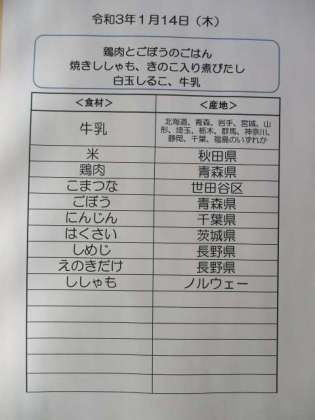 令和3年1月14日（木）
鶏肉とごぼうのごはん
焼きししゃも、きのこ入り煮びたし
白玉しるこ、牛乳
＜食材＞ ＜産地＞
牛乳 北海道、青森、岩手、宮城、山
形、埼玉、栃木、群馬、神奈川、
静岡、千葉、福島のいずれか
米 秋田県
鶏肉 青森県
こまつな 世田谷区
ごぼう 青森県
にんじん 千葉県
はくさい 茨城県
しめじ 長野県
えのきだけ 長野県
ししゃも ノルウェー